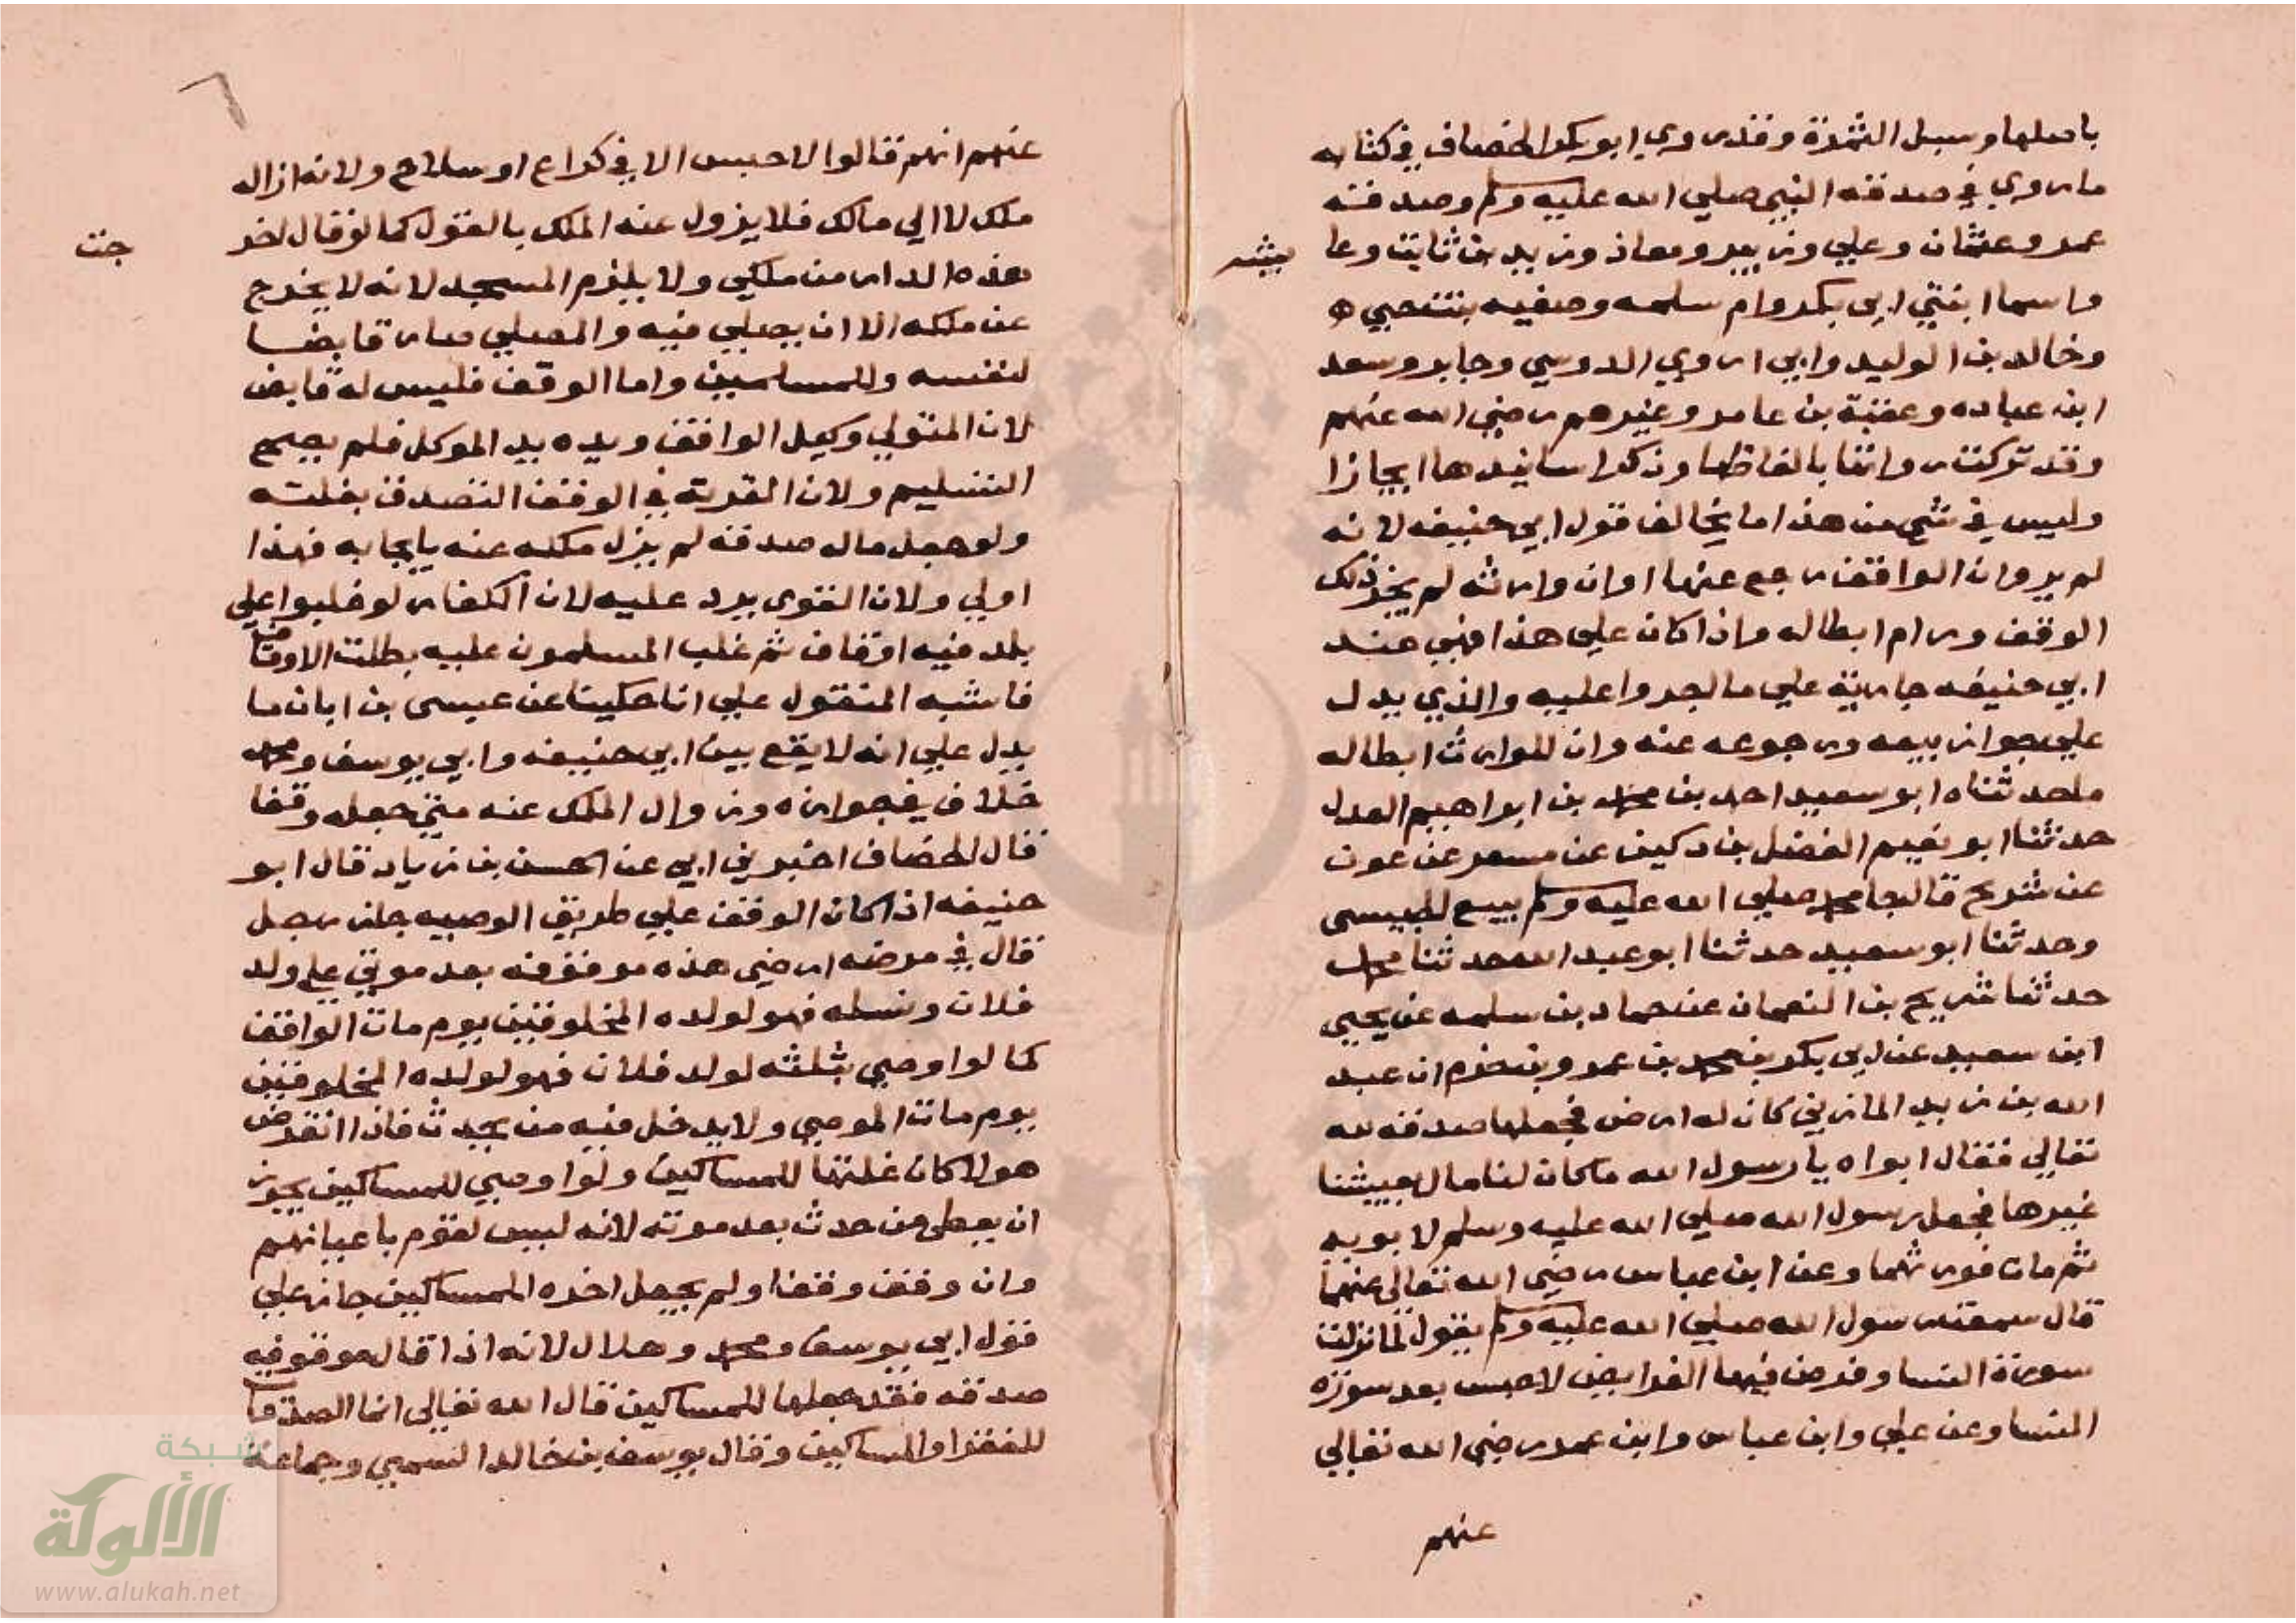 باصلها وسبل الثمرة وقد روي ابو بكر الخصاف في كتابه
ما روي في صدقة النبي صلي الله عليه وسلم وصدقة
عمر وعثمان وعلي وزبير ومعاذ وزيد بن ثابت وعا يشه
واسما ابنتي ابي بكر وام سلمه وصفيه بنت حيي
وخالد بن الوليد وابي اروي الدوسي وجابر وسعد
ابن عباده وعقبة بن عامر وغيرهم رضي الله عنهم
وقد تركت رواتنا بالفاظها وذكر اسانيدها ايجازا
وليس في شي من هذا ما يخالف قول ابي حنيفه لانه
لم يرو ان الواقف رجع عنها او ان وارثه لم يجز ذلك
الوقف ورام ابطاله واذا كان علي هذا فهي عند
ابي حنيفه جارية علي ما اجروا عليه والذي يدل
علي جواز بيعه ورجوعه عنه وان للوارث ابطاله
ما حدثناه ابو سعيد احمد بن محمد بن ابراهيم العدل
حدثنا ابو نعيم الفضل بن دكين عن مسعر عن عون
عن شريح قال جا محمد صلي الله عليه وسلم ببيع الحبيس
وحدثنا ابو سعيد حدثنا ابو عبد الله حدثنا محمد
حدثنا شريح بن النعمان عن حماد بن سلمه عن يحيي
ابن سعيد عن ابي بكر بن محمد بن عمرو بن حزم ان عبد
الله بن زيد المازني كان له ارض فجعلها صدقه لله
تعالي فقال ابواه يا رسول الله ما كان لنا مال يعيشنا
غيرها فجعل رسول الله صلي الله عليه وسلم لابويه
ثم مات فورثهما وعن ابن عباس رضي الله تعالي عنهما
قال سمعت رسول الله صلي الله عليه وسلم يقول لما نزلت
سورة النسا وفرض فيها الفرايض لا حبس بعد سورة
النسا وعن علي وابن عباس وابن عمر رضي الله تعالي
عنهم
عنهم انهم قالوا لا حبس الا في كراع او سلاح ولانه ازاله
ملك لا الي مالك فلا يزول عنه الملك بالقول كما لو قال اخر جت
هذه الدار من ملكي ولا يلزم المسجد لانه لا يخرج
عن ملكه الا ان يصلي فيه والمصلي صار قابضا
لنفسه وللمسلمين واما الوقف فليس له قابض
لان المتولي وكيل الواقف ويده يد الموكل فلم يصح
التسليم ولان القربة في الوقف التصدق بغلته
ولو جعل ماله صدقه لم يزل ملكه عنه بايجابه فهذا
اولي ولان الفتوي يرد عليه لان الكفار لو غلبوا علي
بلد فيه اوقاف ثم غلب المسلمون عليه بطلت الاوقاف
فاشبه المنقول علي انا حكينا عن عيسى بن ابان ما
يدل علي انه لا يقع بين ابي حنيفه وابي يوسف ومحمد
خلاف في جوازه وزوال الملك عنه متي جعله وقفا
قال الخصاف اخبرني ابي عن الحسن بن زياد قال ابو
حنيفه اذا كان الوقف علي طريق الوصيه جاز رجل
قال في مرضه ارضي هذه موقوفه بعد موتي علي ولد
فلان ونسله فهو لولده المخلوقين يوم مات الواقف
كما لو اوصي بثلثه لولد فلان فهو لولده المخلوقين
يوم مات الموصي ولا يدخل فيه من يحدث فاذا انقرض
هولا كان غلتها للمساكين ولو اوصي للمساكين يجوز
ان يعطي من حدث بعد موته لانه ليس لقوم باعيانهم
وان وقف وقفا ولم يجعل اخره للمساكين جاز علي
قول ابي يوسف ومحمد وهلال لانه اذا قال موقوفه
صدقه فقد جعلها للمساكين قال الله تعالي انما الصدقات
للفقرا والمساكين وقال يوسف بن خالد السمتي وجماعة
شبكة
الألوكة
www.alukah.net